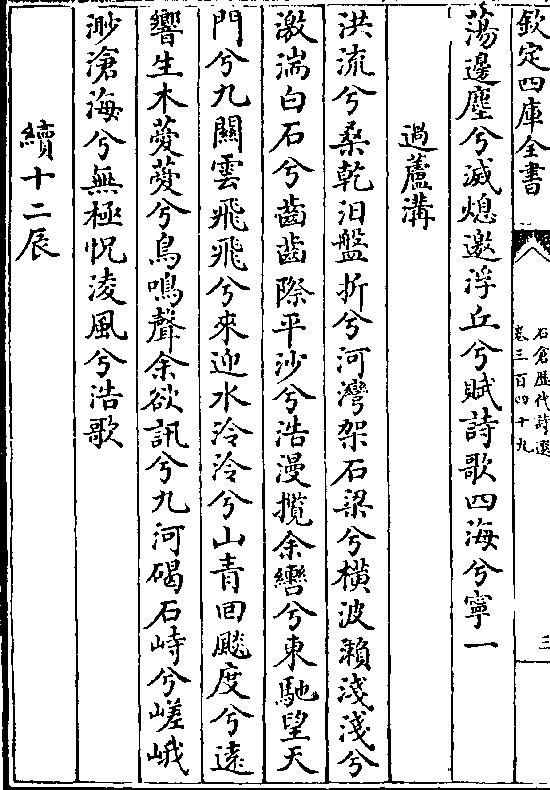 欽定四庫全書
石倉歷代詩選
卷三百四十九
三
蕩邊塵兮滅熄邀浮丘兮賦詩歌四海兮寧一
過蘆溝
洪流兮桑乾汨盤折兮河灣架石梁兮橫波瀨淺淺兮
激湍白石兮齒齒際平沙兮浩漫攬余轡兮東馳望天
門兮九關雲飛飛兮來迎水泠泠兮山青回飇度兮遠
響生木薆薆兮鳥鳴聲余欲訊兮九河碣石峙兮嵯峨
渺滄海兮無極怳淩風兮浩歌
續十二辰